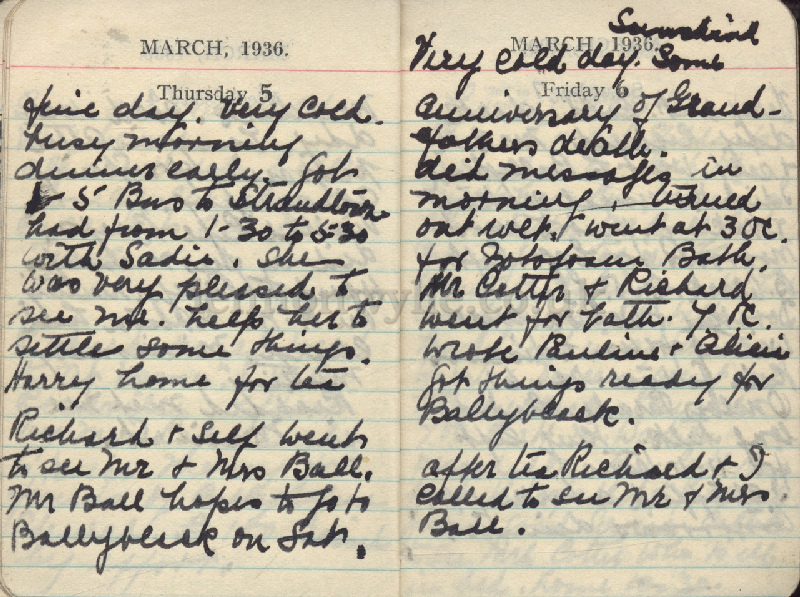 MARCH, 1936.
Thursday 5
fine day. Very cold.
busy morning
dinner early. Got
5 Bus to Strandtown
had from 1-30 to 5-30
with Sadie. She
was very plessed to
see me. help her to
settle some things.
Harry home for tea
Richard & Self went
to see Mr & Mrs Ball.
Mr Ball hopes to go to
Ballyblack on Sat.
MARCH, 1936.
Sunshine
Very cold day. Some
Friday 6
anniversary of Grand-
fathers death.
did messages in
morning, turned
out wet. I went at 3 oc.
for Bath.
Mr & Richard
went for bath. 7 oc.
wrote Pauline & Alicia
Got things ready for
Ballyblack.
after tea Richard & I
called to see Mr & Mrs
Ball.